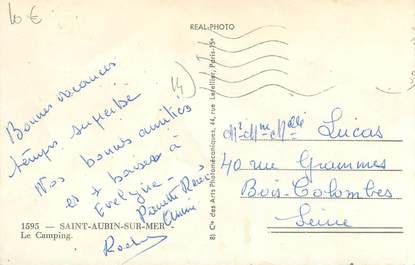 10 €
REAL-PHOTO
14
Bonnes vacances
temps superbe
Nos bonnes amitiés
et + baises à
Evelyne -
Pierrette René
Annie
Roche
1595 - SAINT-AUBIN-SUR-MER -
Le Camping.
8) Cie des Arts Photomécaniques, 44, rue Letellier, Paris-15e
Mr Mme Melle Lucas
40 rue Grammes
Bois-Colombes
Seine